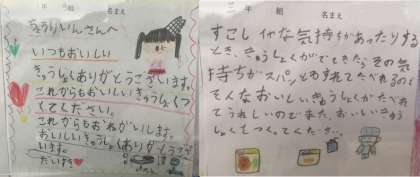 年 組 名まえ
きゅうりいんさんへ
いつもおいしい
きゅうしょくありがとうございます。
これからもおいしいきゅうしょくつ
くてください。
これからもおねがいします。
おいしいきゅうしょくありがとうござ
います。
だいすき
三年 組 名まえ
すこしイヤな気持ちがあったりする
とき、きゅうしょくがでてきたら、その気
持ちがスパンとわすれてたべれるので
そんなおいしいきゅうしょくがたべれ
てうれしいのでまた、おいしいきゅう
しょくをつくってくださ